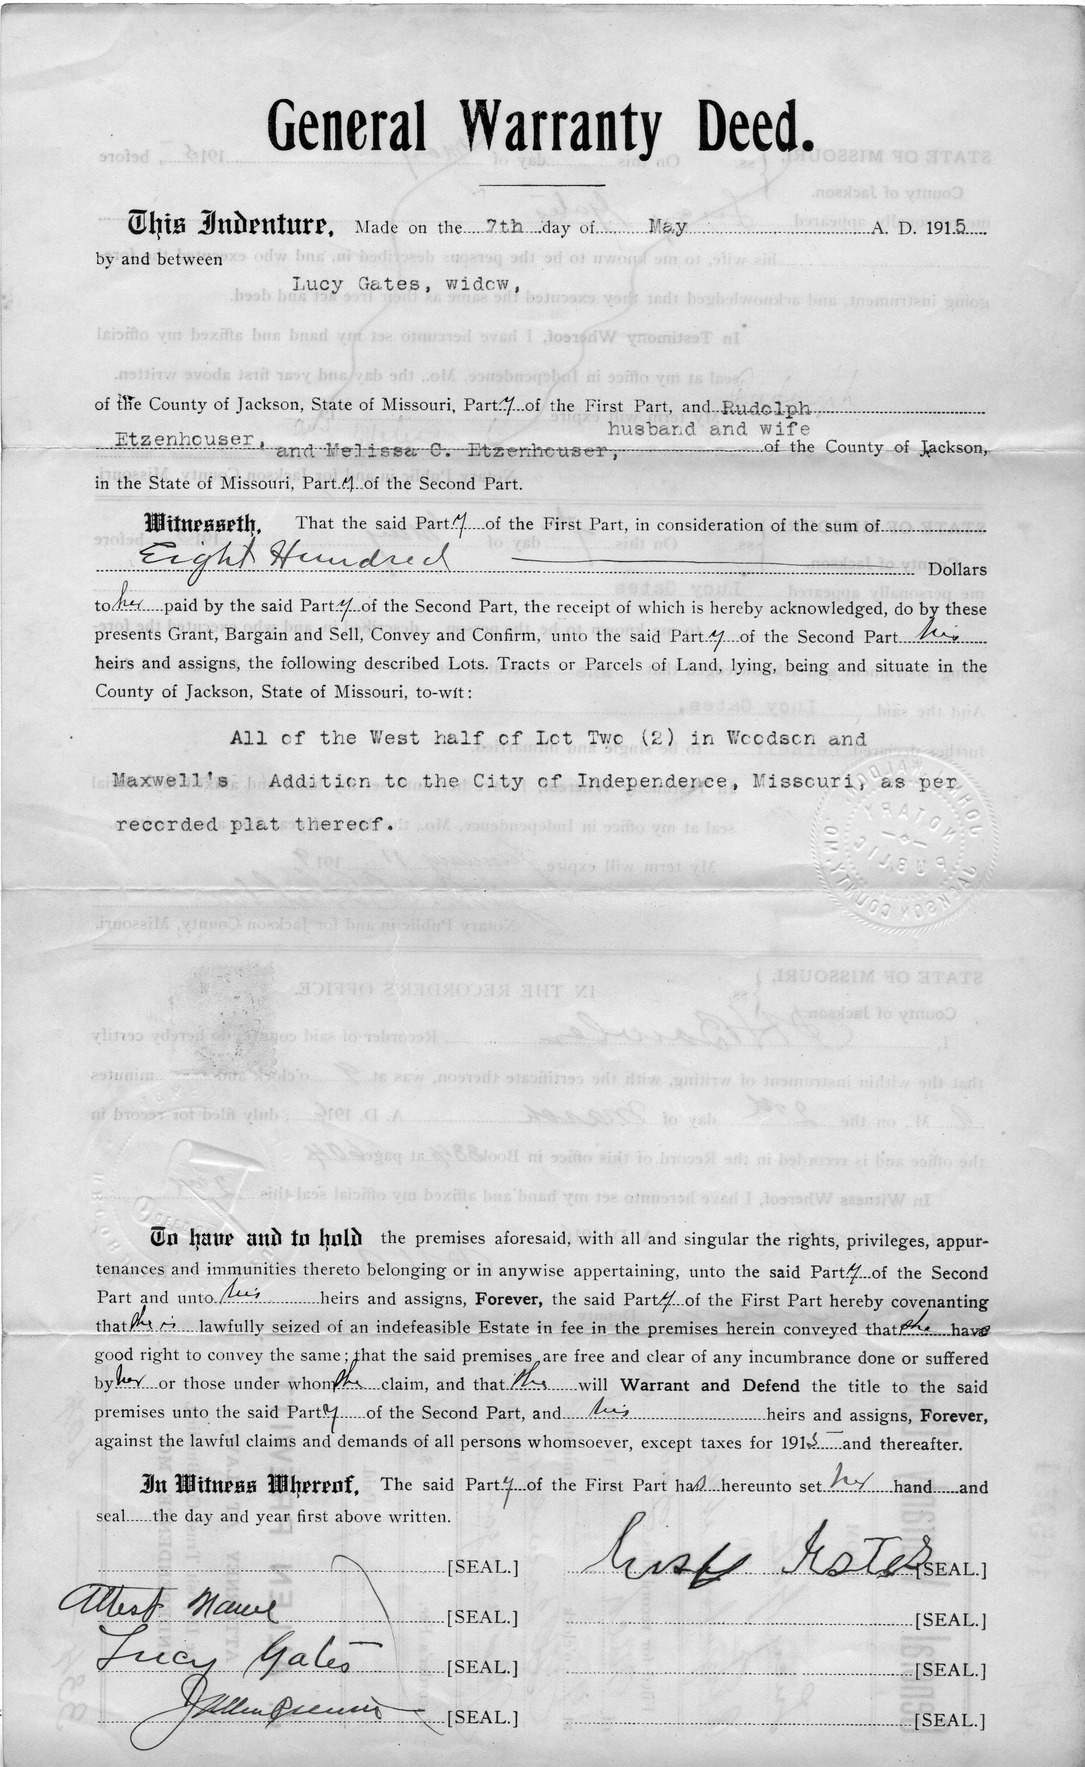 General Warranty Deed.
This Indenture, Made on the 7th day of May A. D. 1915
by and between
Lucy Gates, widow,
of the County of Jackson, State of Missouri, Party of the First Part, and Rudolph
husband and wife
Etzenhouser, and Melissa C. Etzenhouser, of the County of Jackson,
in the State of Missouri, Party of the Second Part.
Witnesseth, That the said Party of the First Part, in consideration of the sum of
Eight Hundred Dollars
to her paid by the said Party of the Second Part, the receipt of which is hereby acknowledged, do by these
presents Grant, Bargain and Sell, Convey and Confirm, unto the said Party of the Second Part his
heirs and assigns, the following described Lots. Tracts or Parcels of Land, lying, being and situate in the
County of Jackson, State of Missouri, to-wit:
All of the West half of Lot Two (2) in Woodson and
Maxwell's Addition to the City of Independence, Missouri, as per
recorded plat thereof.
To have and to hold the premises aforesaid, with all and singular the rights, privileges, appur-
tenances and immunities thereto belonging or in anywise appertaining, unto the said Party of the Second
Part and unto his heirs and assigns, Forever, the said Party of the First Part hereby covenanting
that she is lawfully seized of an indefeasible Estate in fee in the premises herein conveyed that she has
good right to convey the same; that the said premises are free and clear of any incumbrance done or suffered
by her or those under whom she claim, and that she will Warrant and Defend the title to the said
premises unto the said Party of the Second Part, and his heirs and assigns, Forever,
against the lawful claims and demands of all persons whomsoever, except taxes for 1915 and thereafter.
In Witness Whereof, The said Party of the First Part has hereunto set her hand and
seal the day and year first above written.
[SEAL.] Lucy Gates [SEAL.]
Attest Name [SEAL.] [SEAL.]
Lucy Gates [SEAL.] [SEAL.]
J Allen Prewitt [SEAL.] [SEAL.]